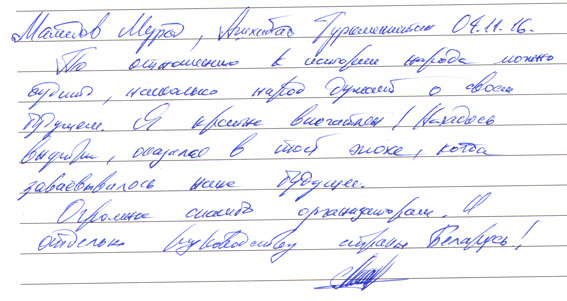 Мамедов Мурад, Туркменистан 04.11.16.
По отношению к истории народа можно
судить, насколько народ думает о своем
будущем. Я крайне впечатлен! Находясь
внутри, оказался в той эпохе, когда
завоевывалось наше будущее.
Огромное спасибо организаторам. И
отдельно руководству страны Беларусь!